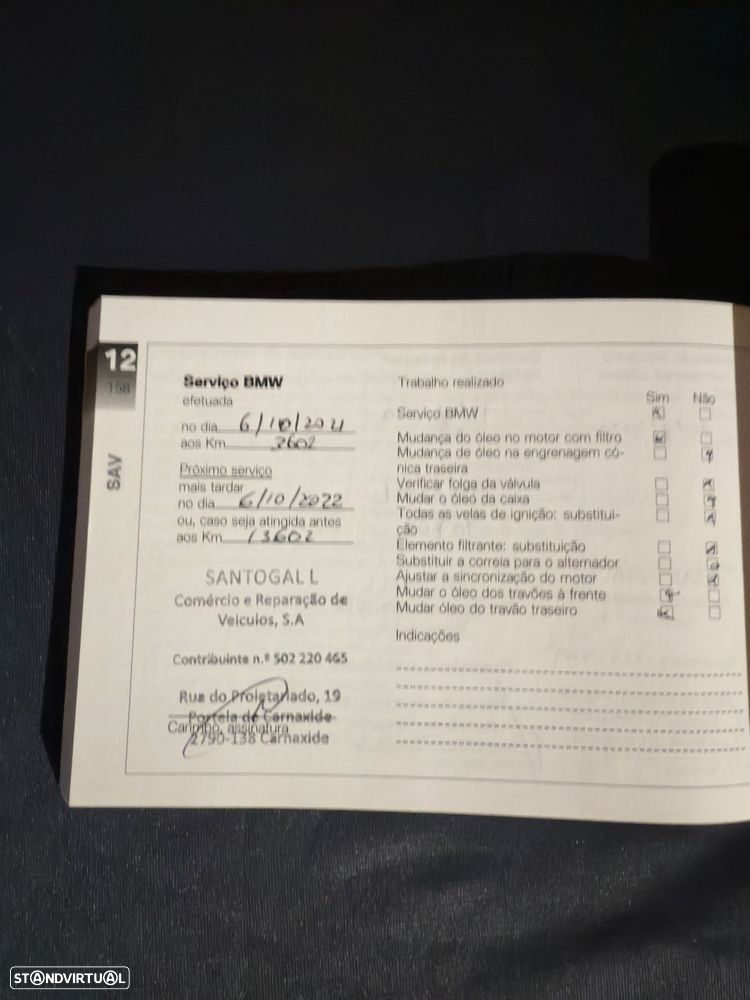 12
158
SAV
Serviço BMW
efetuada
no dia 6/10/2021
aos Km 3602
Próximo serviço
mais tardar
no dia 6/10/2022
ou, caso seja atingida antes
aos Km 13602
SANTOGAL L
Comércio e Reparação de
Veiculos, S.A
Contribuinte n.º 502 220 465
Rua do Proletariado, 19
Portela de Carnaxide
Carimbo, assinatura
2790-138 Carnaxide
Trabalho realizado
Sim Não
Serviço BMW
Mudança do óleo no motor com filtro
Mudança de óleo na engrenagem có-
nica traseira
Verificar folga da válvula
Mudar o óleo da caixa
Todas as velas de ignição: substitui-
ção
Elemento filtrante: substituição
Substituir a correia para o alternador
Ajustar a sincronização do motor
Mudar o óleo dos travões à frente
Mudar óleo do travão traseiro
Indicações
STANDVIRTUAL